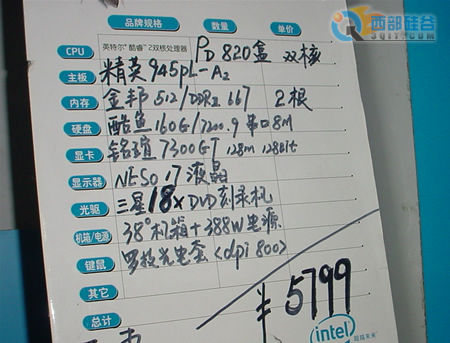 西部硅谷
3QIT.COM
品牌规格 数量 单价
CPU 英特尔®酷睿™2双核处理器 PD 820盒 双核
主板 精英945PL-A2
内存 金邦512/DDRII 667 2根
硬盘 酷鱼160G/7200.9 串口8M
显卡 铭瑄7300GT 128m 128bit
显示器 NESO 17液晶
光驱 三星18xDVD刻录机
机箱/电源 38°机箱+388W电源
键鼠 罗技光电套<dpi 800>
其它
总计 ¥5799
intel 超越未来™